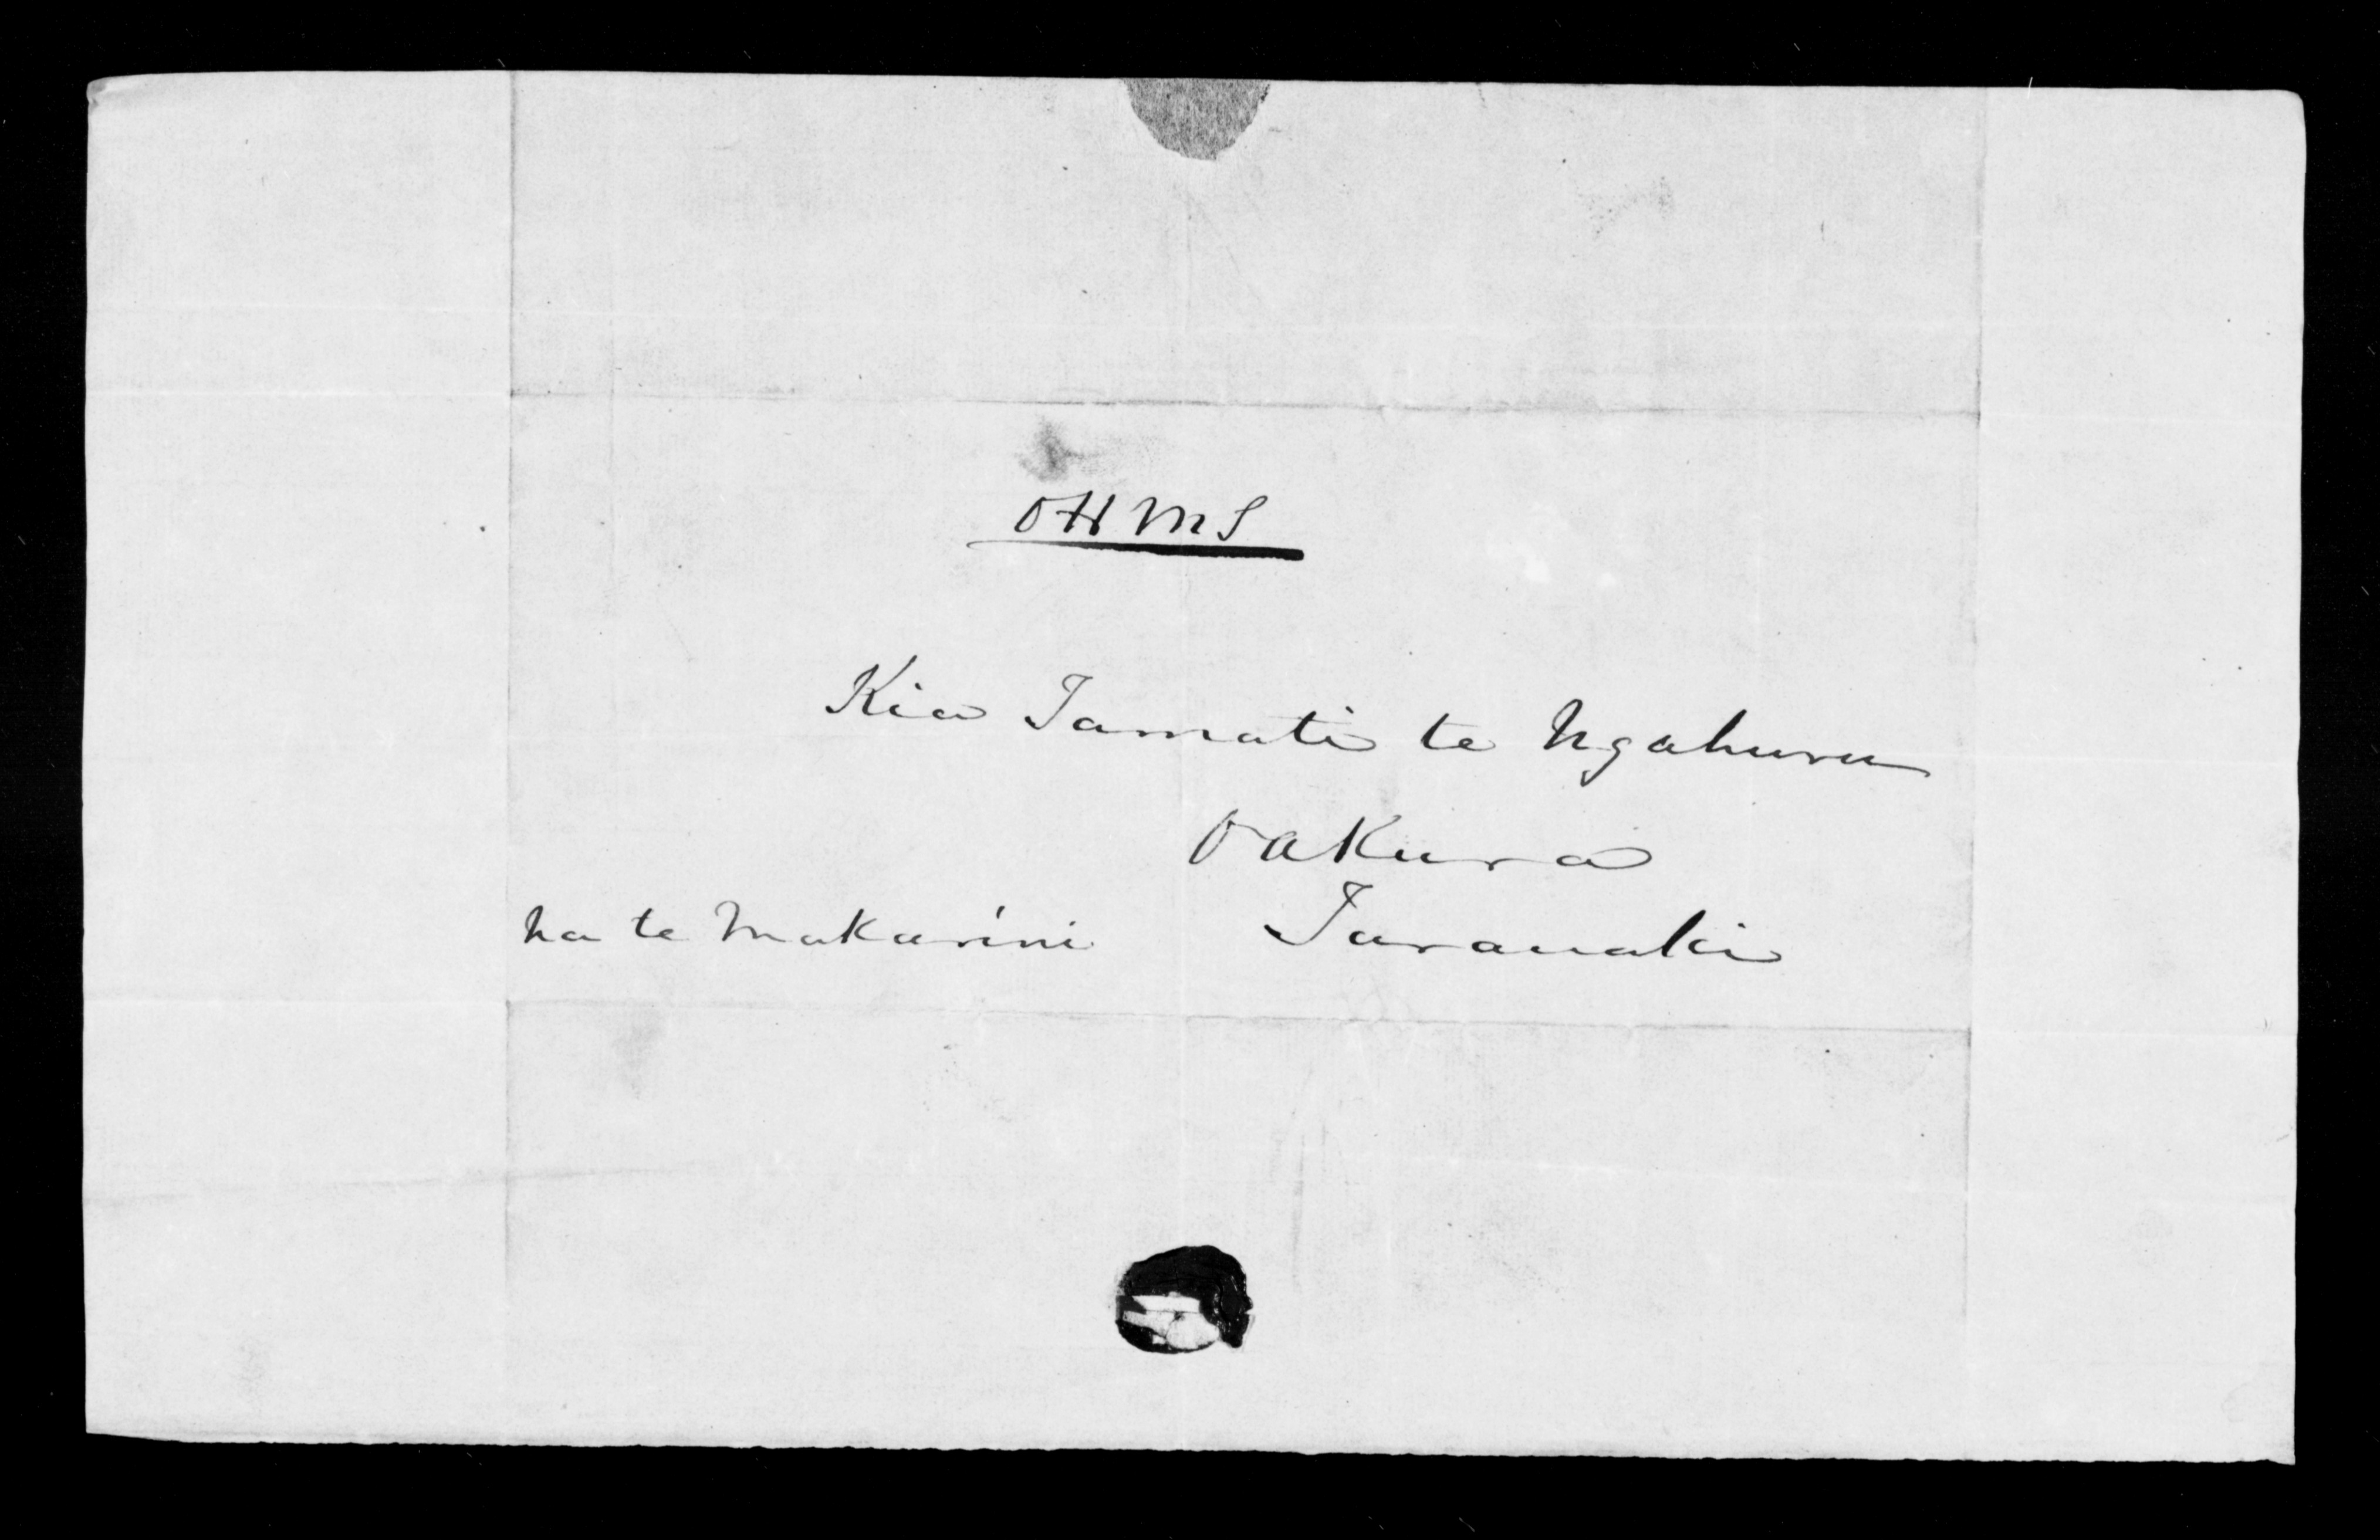 OHMS
Kia Tamati te Ngahuru
Oakura
Na te Makarini
Taranaki